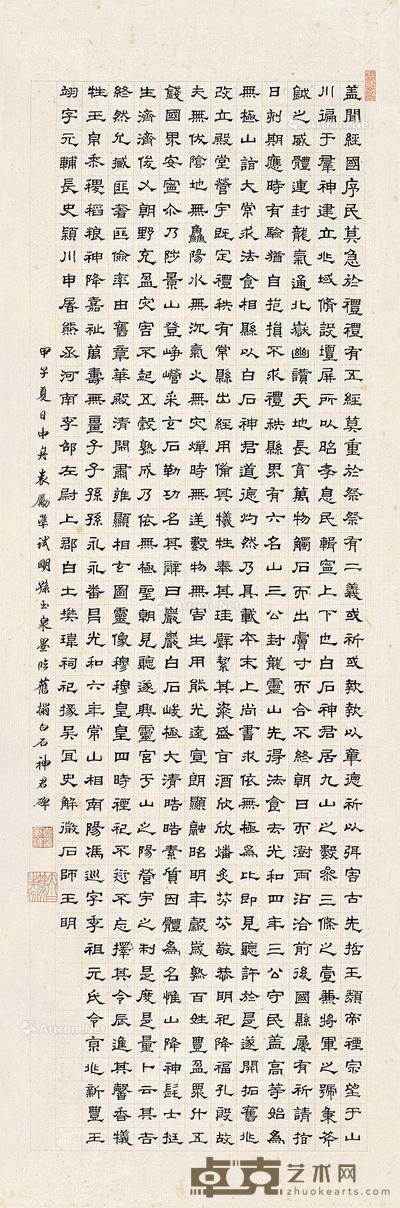 盖聞經國序民莫急於禮禮有五經莫重於祭祭有二義或祈或報報以章德祈以弭害古先哲王類帝禋宗望于山
川徧于羣神建立兆域脩設壇屏所以昭孝息民輯寧上下也白石神君居九山之數參三條之壹兼將軍之號秉斧
鉞之威體連封龍氣通北嶽幽讚天地長育萬物觸石而出膚寸而合不終朝日而澍雨沾洽前後國縣屢有祈請指
日刻期應時有驗猶自挹損不求禮秩縣界有六名山三公封龍靈山先得法食去光和四年三公守民盖高等始為
無極山詣大常求法食相縣以白石神君道德灼然乃具載本末上尚書求依無極為比即見聽許於是遂開拓舊兆
改立殿堂營宇既定禮秩有常縣出經用備其犧牲奉其珪璧絜其粢盛旨酒欣欣燔炙芬芬敬恭明祀降福孔殷故
天無伏陰地無鱻陽水無沉氣火無灾燀時無逆數物無害生用能光遠宣朗顯融昭明年穀歲熟百姓豐盈粟升五
錢國界安寧尒乃陟景山登崢嶸采玄石勒功名其辭曰巖巖白石峻極大清皓皓素質因體為名惟山降神髦士挺
生濟濟俊乂朝野充盈灾害不起五穀熟成乃依無極聖朝見聽遂興靈宮于山之陽營宇之制是度是量卜云其吉
終然允臧匪奢匪儉率由舊章華殿清閑肅雍顯相玄圖靈像穆穆皇皇四時禋祀不愆不忘擇其令辰進其馨香犧
牲玉帛黍稷稻粮神降嘉祉萬壽無疆子子孫孫永永番昌光和六年常山相南陽馮巡字季祖元氏令京兆新豐王
翊字元輔長史潁川申屠熊丞河南李邵左尉上郡白土樊瑋祠祀掾吳宜史解微石師王明
甲子夏日中舟袁勵準試明孫玉泉墨臨舊搨白石神君碑
卓克艺术网
zhuokearts.com